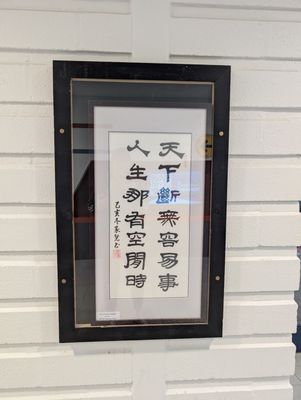 天下斷無容易事
人生那有空閒時